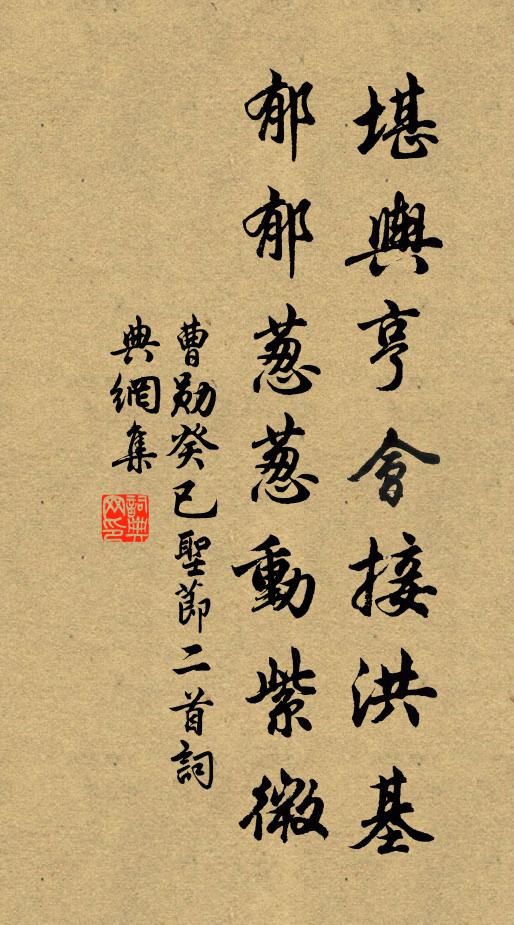 堪輿亨會接洪基
郁郁葱葱動紫微
曹勛癸巳聖節二首詞
典網集
詞典網印